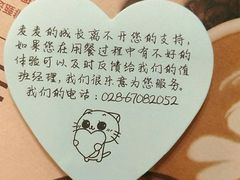 麦麦的成长离不开您的支持,
如果您在用餐过程中有不好的
体验可以及时反馈给我们的值
班经理,我们很乐意为您服务。
我们的电话:028-67082052